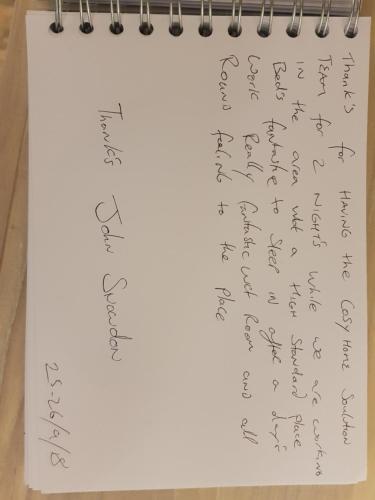 Thank's for HAVING the Cosy Home Soulution
TEAM for 2 NIGHTS while we are working
in the area what a HIGH Standard place
Bed's fantastic to sleep in after a day's
work Really fantastic wet Room and all
Round feeling to the place
Thank's John Snowdon
25-26/9/8